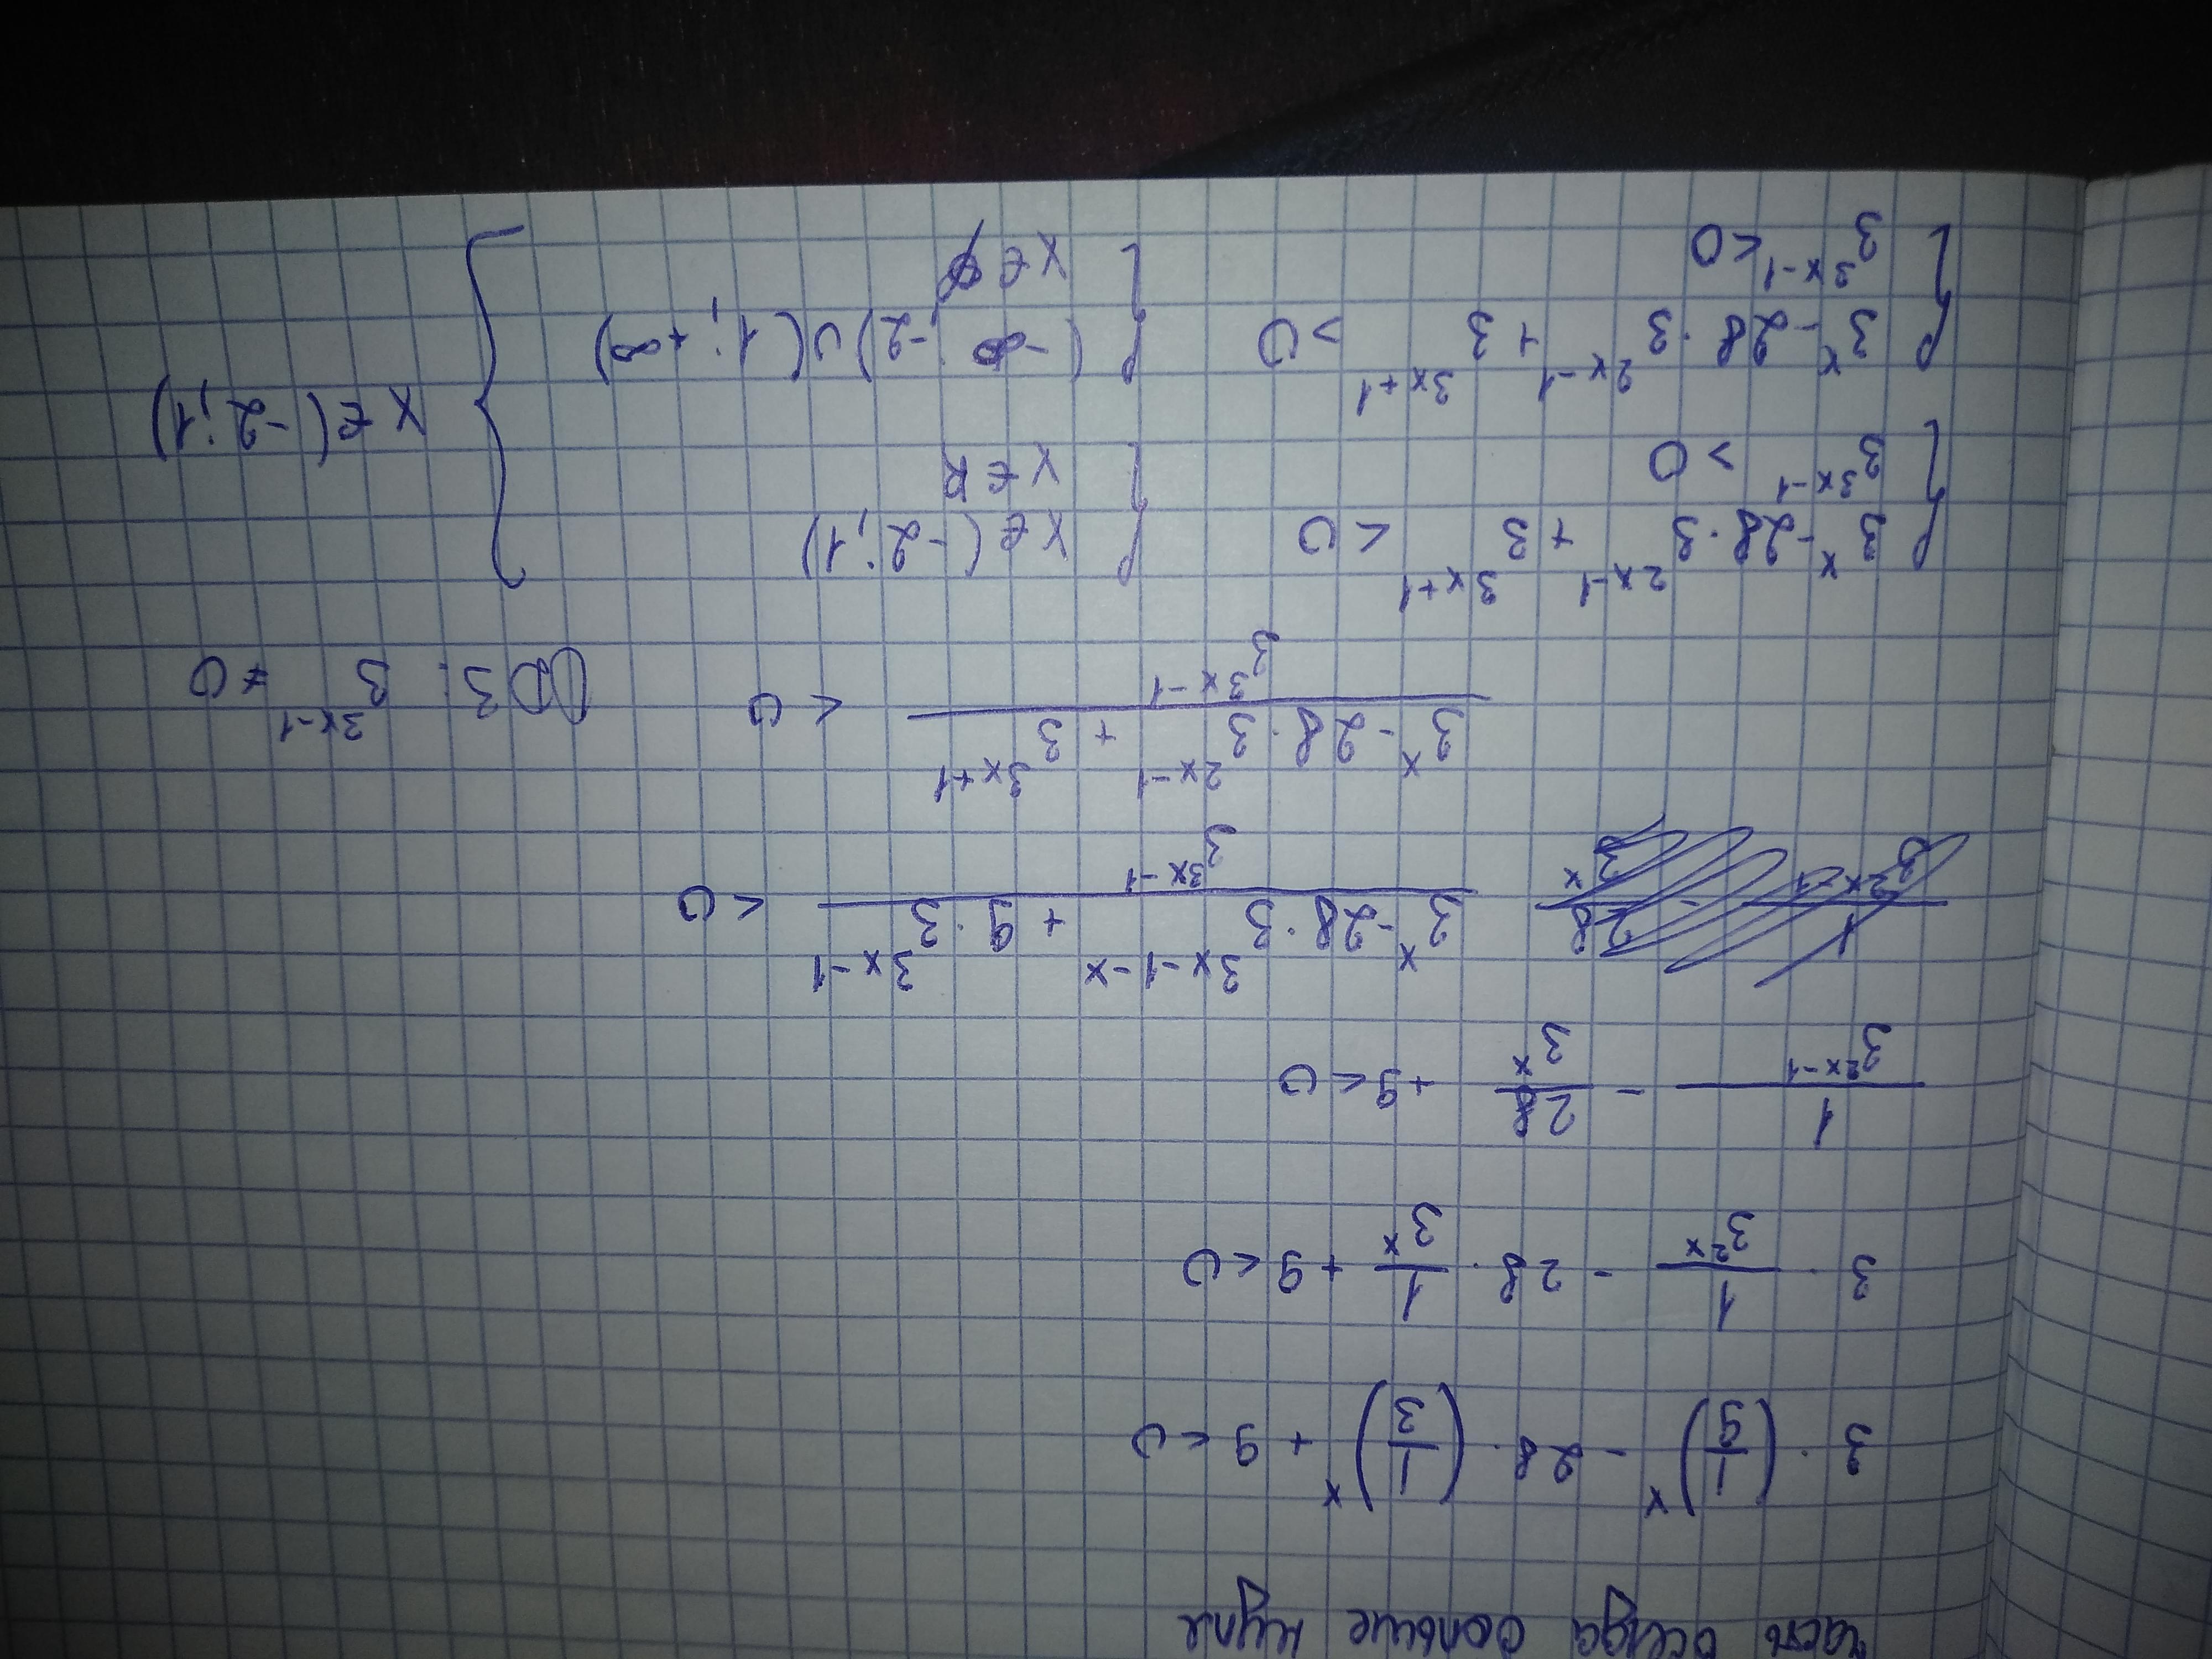 часть всегда больше нуля
3 · (1/9)^x - 28 · (1/3)^x + 9 < 0
3 · 1/3^(2x) - 28 · 1/3^x + 9 < 0
1/3^(2x-1) - 28/3^x + 9 < 0
(3^x - 28 · 3^(3x-1-x) + 9 · 3^(3x-1))/3^(3x-1) < 0
(3^x - 28 · 3^(2x-1) + 3^(3x+1))/3^(3x-1) < 0 ОДЗ: 3^(3x-1) ≠ 0
{ 3^x - 28 · 3^(2x-1) + 3^(3x+1) < 0 { x ∈ (-2; 1)
3^(3x-1) > 0 x ∈ R
{ 3^x - 28 · 3^(2x-1) + 3^(3x+1) > 0 { (-∞; -2) ∪ (1; +∞) } x ∈ (-2; 1)
3^(3x-1) < 0 x ∈ ∅